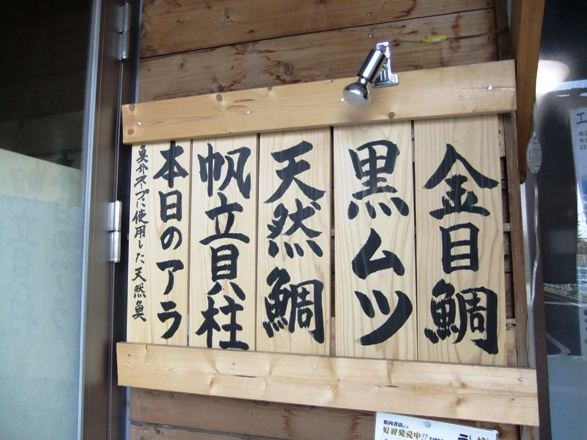 金目鯛
黒ムツ
天然鯛
帆立貝柱
本日のアラ
魚介スープに使用した天然魚
好評発売中!!